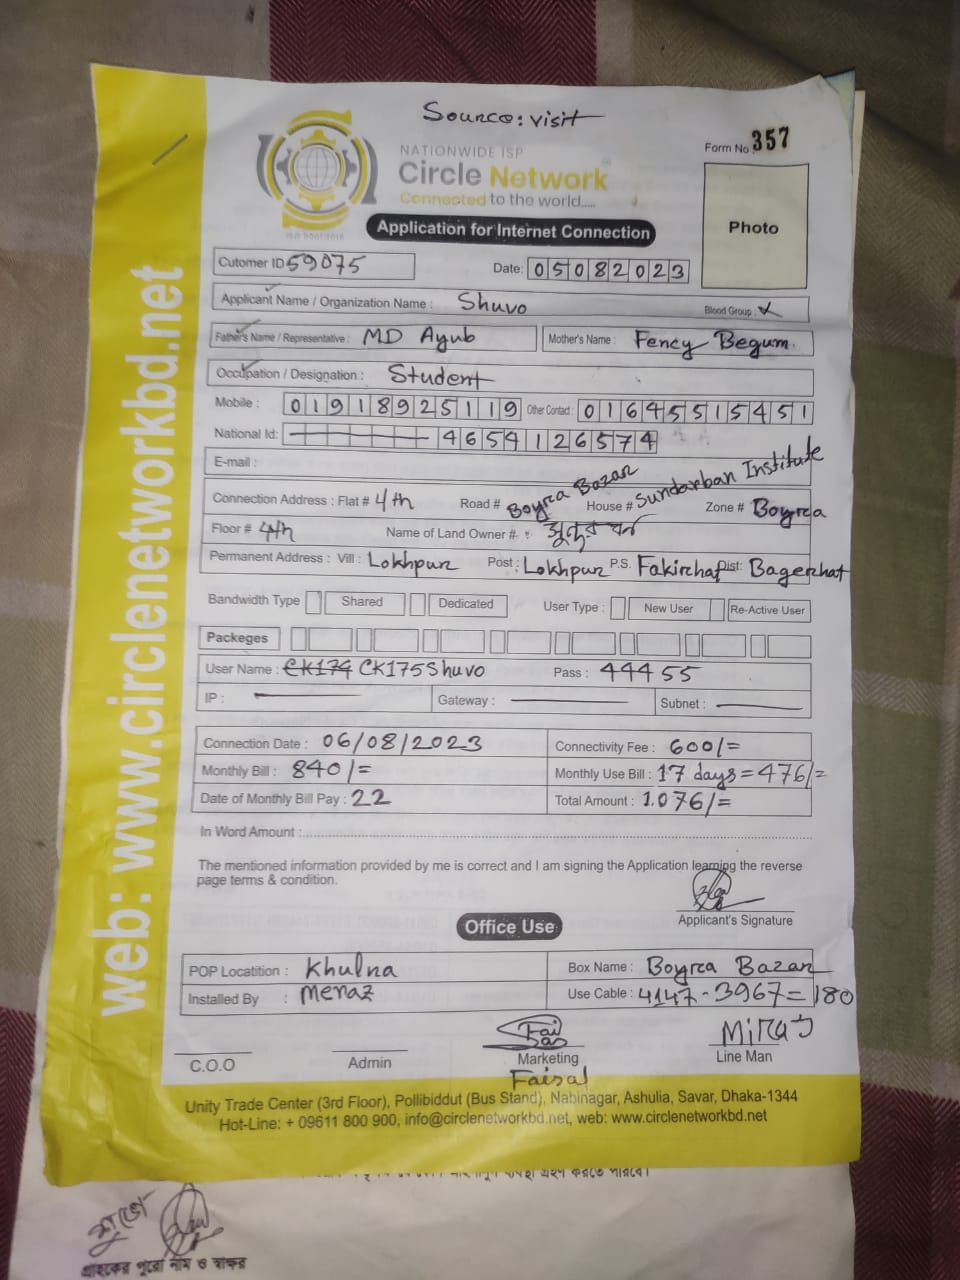 Source: visit
Form No 357
NATIONWIDE ISP
Circle Network
Connected to the world.....
ISO 9001:2015
Application for Internet Connection
Photo
Cutomer ID 59075
Date: 05082023
Applicant Name / Organization Name : Shuvo Blood Group :
Father's Name / Representative : MD Ayub Mother's Name : Fency Begum.
Occupation / Designation : Student
Mobile : 01918925119 Other Contact : 01645515451
National Id: 4654126574
E-mail :
Connection Address : Flat # 4th Road # Boyra Bazar House # Sundarban Institute Zone # Boyra
Floor # 4th Name of Land Owner # :
Permanent Address : Vill : Lokhpur Post : Lokhpur P.S. Fakirhat Dist: Bagerhat
Bandwidth Type Shared Dedicated User Type : New User Re-Active User
Packeges
User Name : CK174 CK175Shuvo Pass : 44455
IP : Gateway : Subnet :
Connection Date : 06/08/2023 Connectivity Fee : 600/=
Monthly Bill : 840/= Monthly Use Bill : 17 days = 476/=
Date of Monthly Bill Pay : 22 Total Amount : 1.076/=
In Word Amount :
The mentioned information provided by me is correct and I am signing the Application learning the reverse
page terms & condition.
Applicant's Signature
Office Use
POP Locatition : Khulna Box Name : Boyra Bazar
Installed By : Meraz Use Cable : 4147-3967=180
C.O.O Admin Marketing Line Man
Faisal
Miraj
Unity Trade Center (3rd Floor), Pollibiddut (Bus Stand), Nabinagar, Ashulia, Savar, Dhaka-1344
Hot-Line: + 09611 800 900, info@circlenetworkbd.net, web: www.circlenetworkbd.net
web: www.circlenetworkbd.net
শুভো
গ্রাহকের পুরো নাম ও স্বাক্ষর